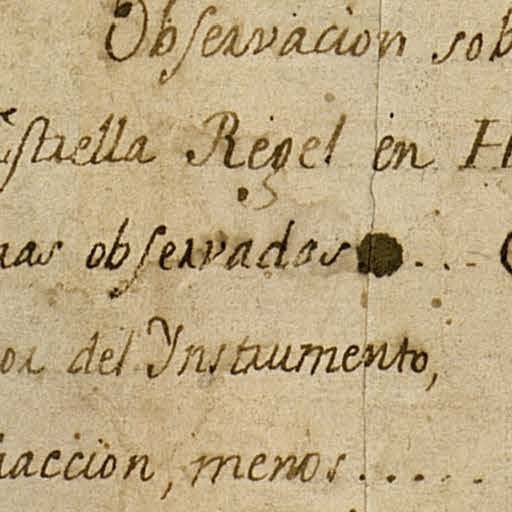 Observacion sob
Estrella Regel en H
ras observadas....
or del Ynstrumento,
raccion, menos.....